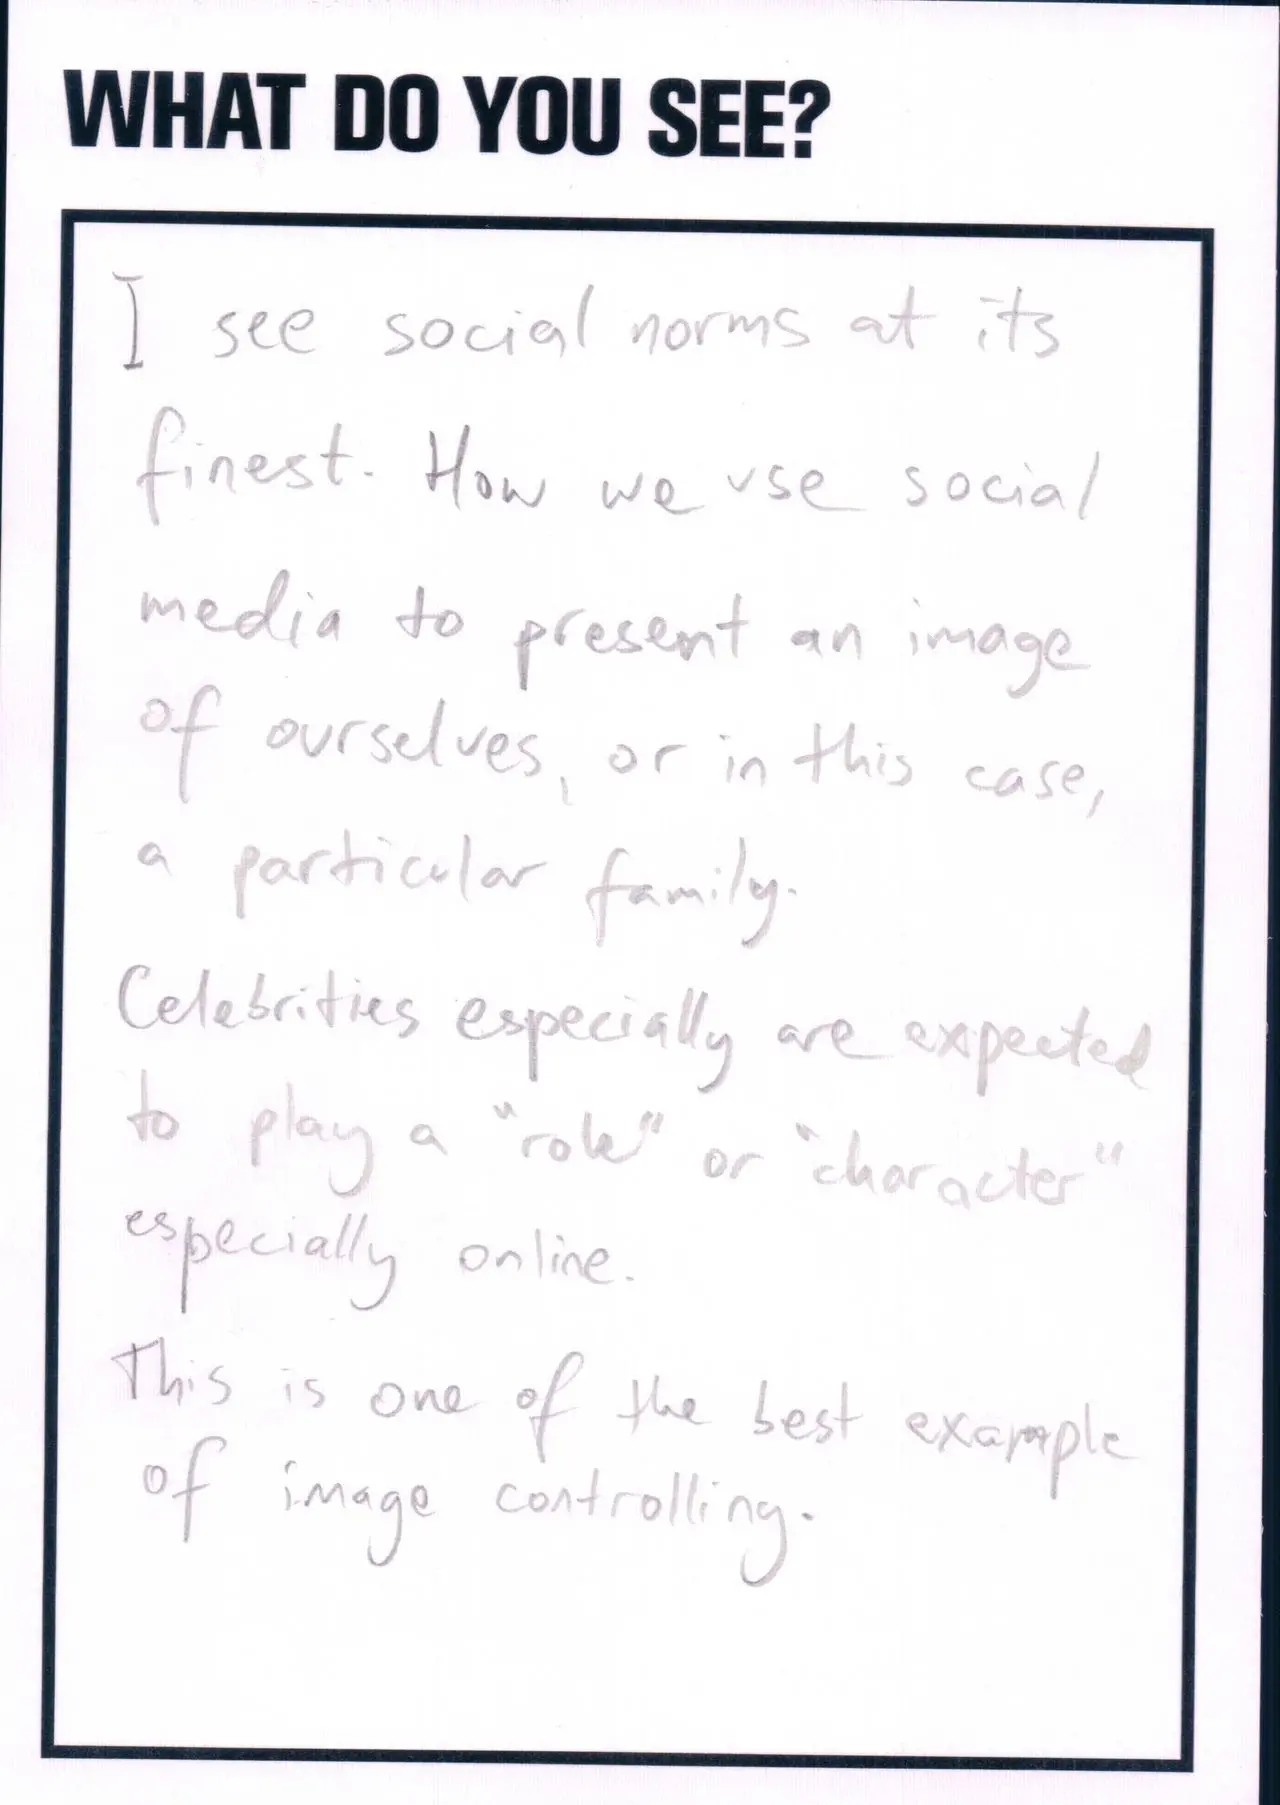 WHAT DO YOU SEE?
I see social norms at its
finest. How we use social
media to present an image
of ourselves, or in this case,
a particular family.
Celebrities especially are expected
to play a "role" or "character"
especially online.
This is one of the best example
of image controlling.